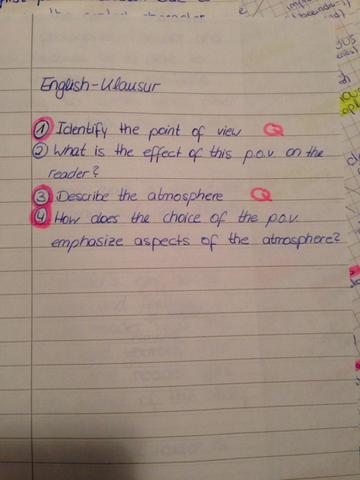 English-Klausur
① Identify the point of view Q
② What is the effect of this p.o.v. on the
reader?
③ Describe the atmosphere Q
④ How does the choice of the p.o.v.
emphasize aspects of the atmosphere?